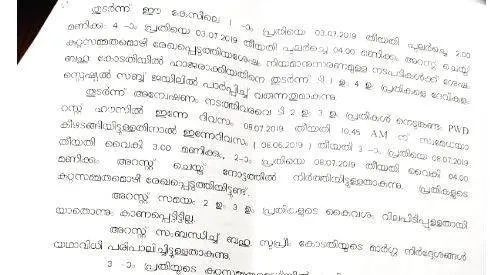 തുടർന്ന് ഈ കേസിലെ 1 -ാം പ്രതിയെ 03.07.2019 തിയതി പുലർച്ചെ 2.00
മണിക്കും 4 -ാം പ്രതിയെ 03.07.2019 തിയതി പുലർച്ചെ 04.00 മണിക്കും അറസ്റ്റ് ചെയ്ത്
കുറ്റസമ്മതമൊഴി രേഖപ്പെടുത്തിയശേഷം നിയമാനുസരണമുള്ള നടപടികൾക്ക് ശേഷം
ബഹു കോടതിയിൽ ഹാജരാക്കിയതിനെ തുടർന്ന് ടി 1 ഉം 4 ഉം പ്രതികളെ ദേവികുളം
സ്പെഷ്യൽ സബ്ബ് ജയിലിൽ പാർപ്പിച്ച് വരുന്നതുമാകുന്നു.
തുടർന്ന് അന്വേഷണം നടത്തിവരവെ ടി 2 ഉം 3 ഉം പ്രതികൾ നെടുങ്കണ്ടം PWD
റസ്റ്റ് ഹൗസിൽ ഇന്നേ ദിവസം 08.07.2019 തിയതി 10.45 AM ന് സ്വമേധയാ
കീഴടങ്ങിയിട്ടുള്ളതിനാൽ ഇന്നേദിവസം (08.06.2019) തിയതി 3 -ാം പ്രതിയെ 08.07.2019
തിയതി വൈകി 3.00 മണിക്കും, 2-ാം പ്രതിയെ 08.07.2019 തിയതി വൈകി 04.00
മണിക്കും അറസ്റ്റ് ചെയ്ത് നോട്ടത്തിൽ നിർത്തിയിട്ടുള്ളതാകുന്നു. പ്രതികളുടെ
കുറ്റസമ്മതമൊഴി രേഖപ്പെടുത്തിയിട്ടുണ്ട്.
അറസ്റ്റ് സമയം 2 ഉം 3 ഉം പ്രതികളുടെ കൈവശം വിലപിടിപ്പുള്ളതായി
യാതൊന്നും കാണപ്പെട്ടിട്ടില്ല.
അറസ്റ്റ് സംബന്ധിച്ച് ബഹു സുപ്രീം കോടതിയുടെ മാർഗ്ഗ നിർദ്ദേശങ്ങൾ
യഥാവിധി പരിപാലിച്ചിട്ടുള്ളതാകുന്നു.
3 -ാം പ്രതിയുടെ